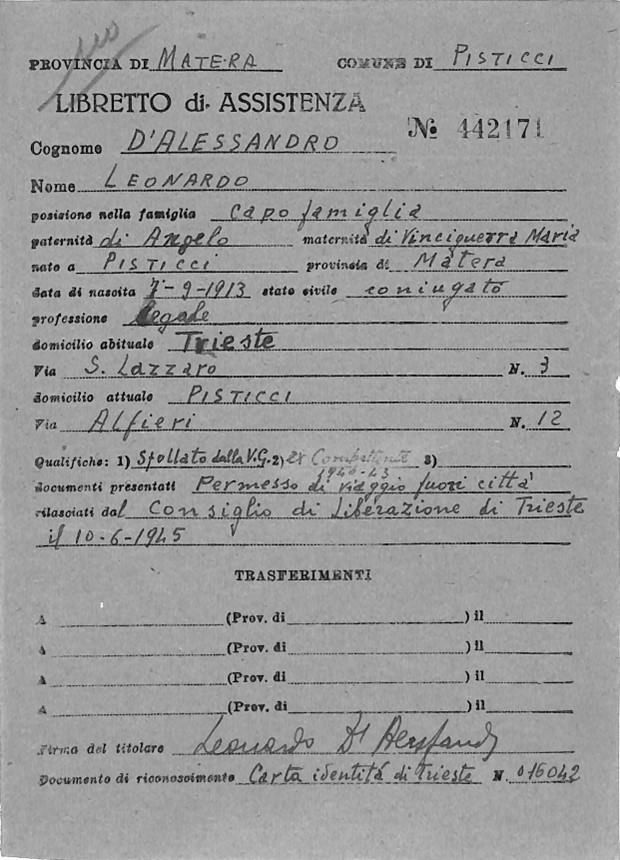 PROVINCIA DI MATERA COMUNE DI PISTICCI
LIBRETTO di ASSISTENZA
№ 442171
Cognome D'ALESSANDRO
Nome LEONARDO
posizione nella famiglia capo famiglia
paternità di Angelo maternità di Vinciguerra Maria
nato a PISTICCI provincia di Matera
data di nascita 7-9-1913 stato civile coniugato
professione legale
domicilio abituale Trieste
Via S. Lazzaro N. 3
domicilio attuale PISTICCI
Via Alfieri N. 12
Qualifiche: 1) Sfollato dalla V.G. 2) ex Combattente 3)
1940-43
documenti presentati Permesso di viaggio fuori città
rilasciati dal Consiglio di Liberazione di Trieste
il 10-6-1945
TRASFERIMENTI
A (Prov. di ) il
A (Prov. di ) il
A (Prov. di ) il
A (Prov. di ) il
Firma del titolare Leonardo D'Alessandro
Documento di riconoscimento Carta identitá di Trieste N. 016042